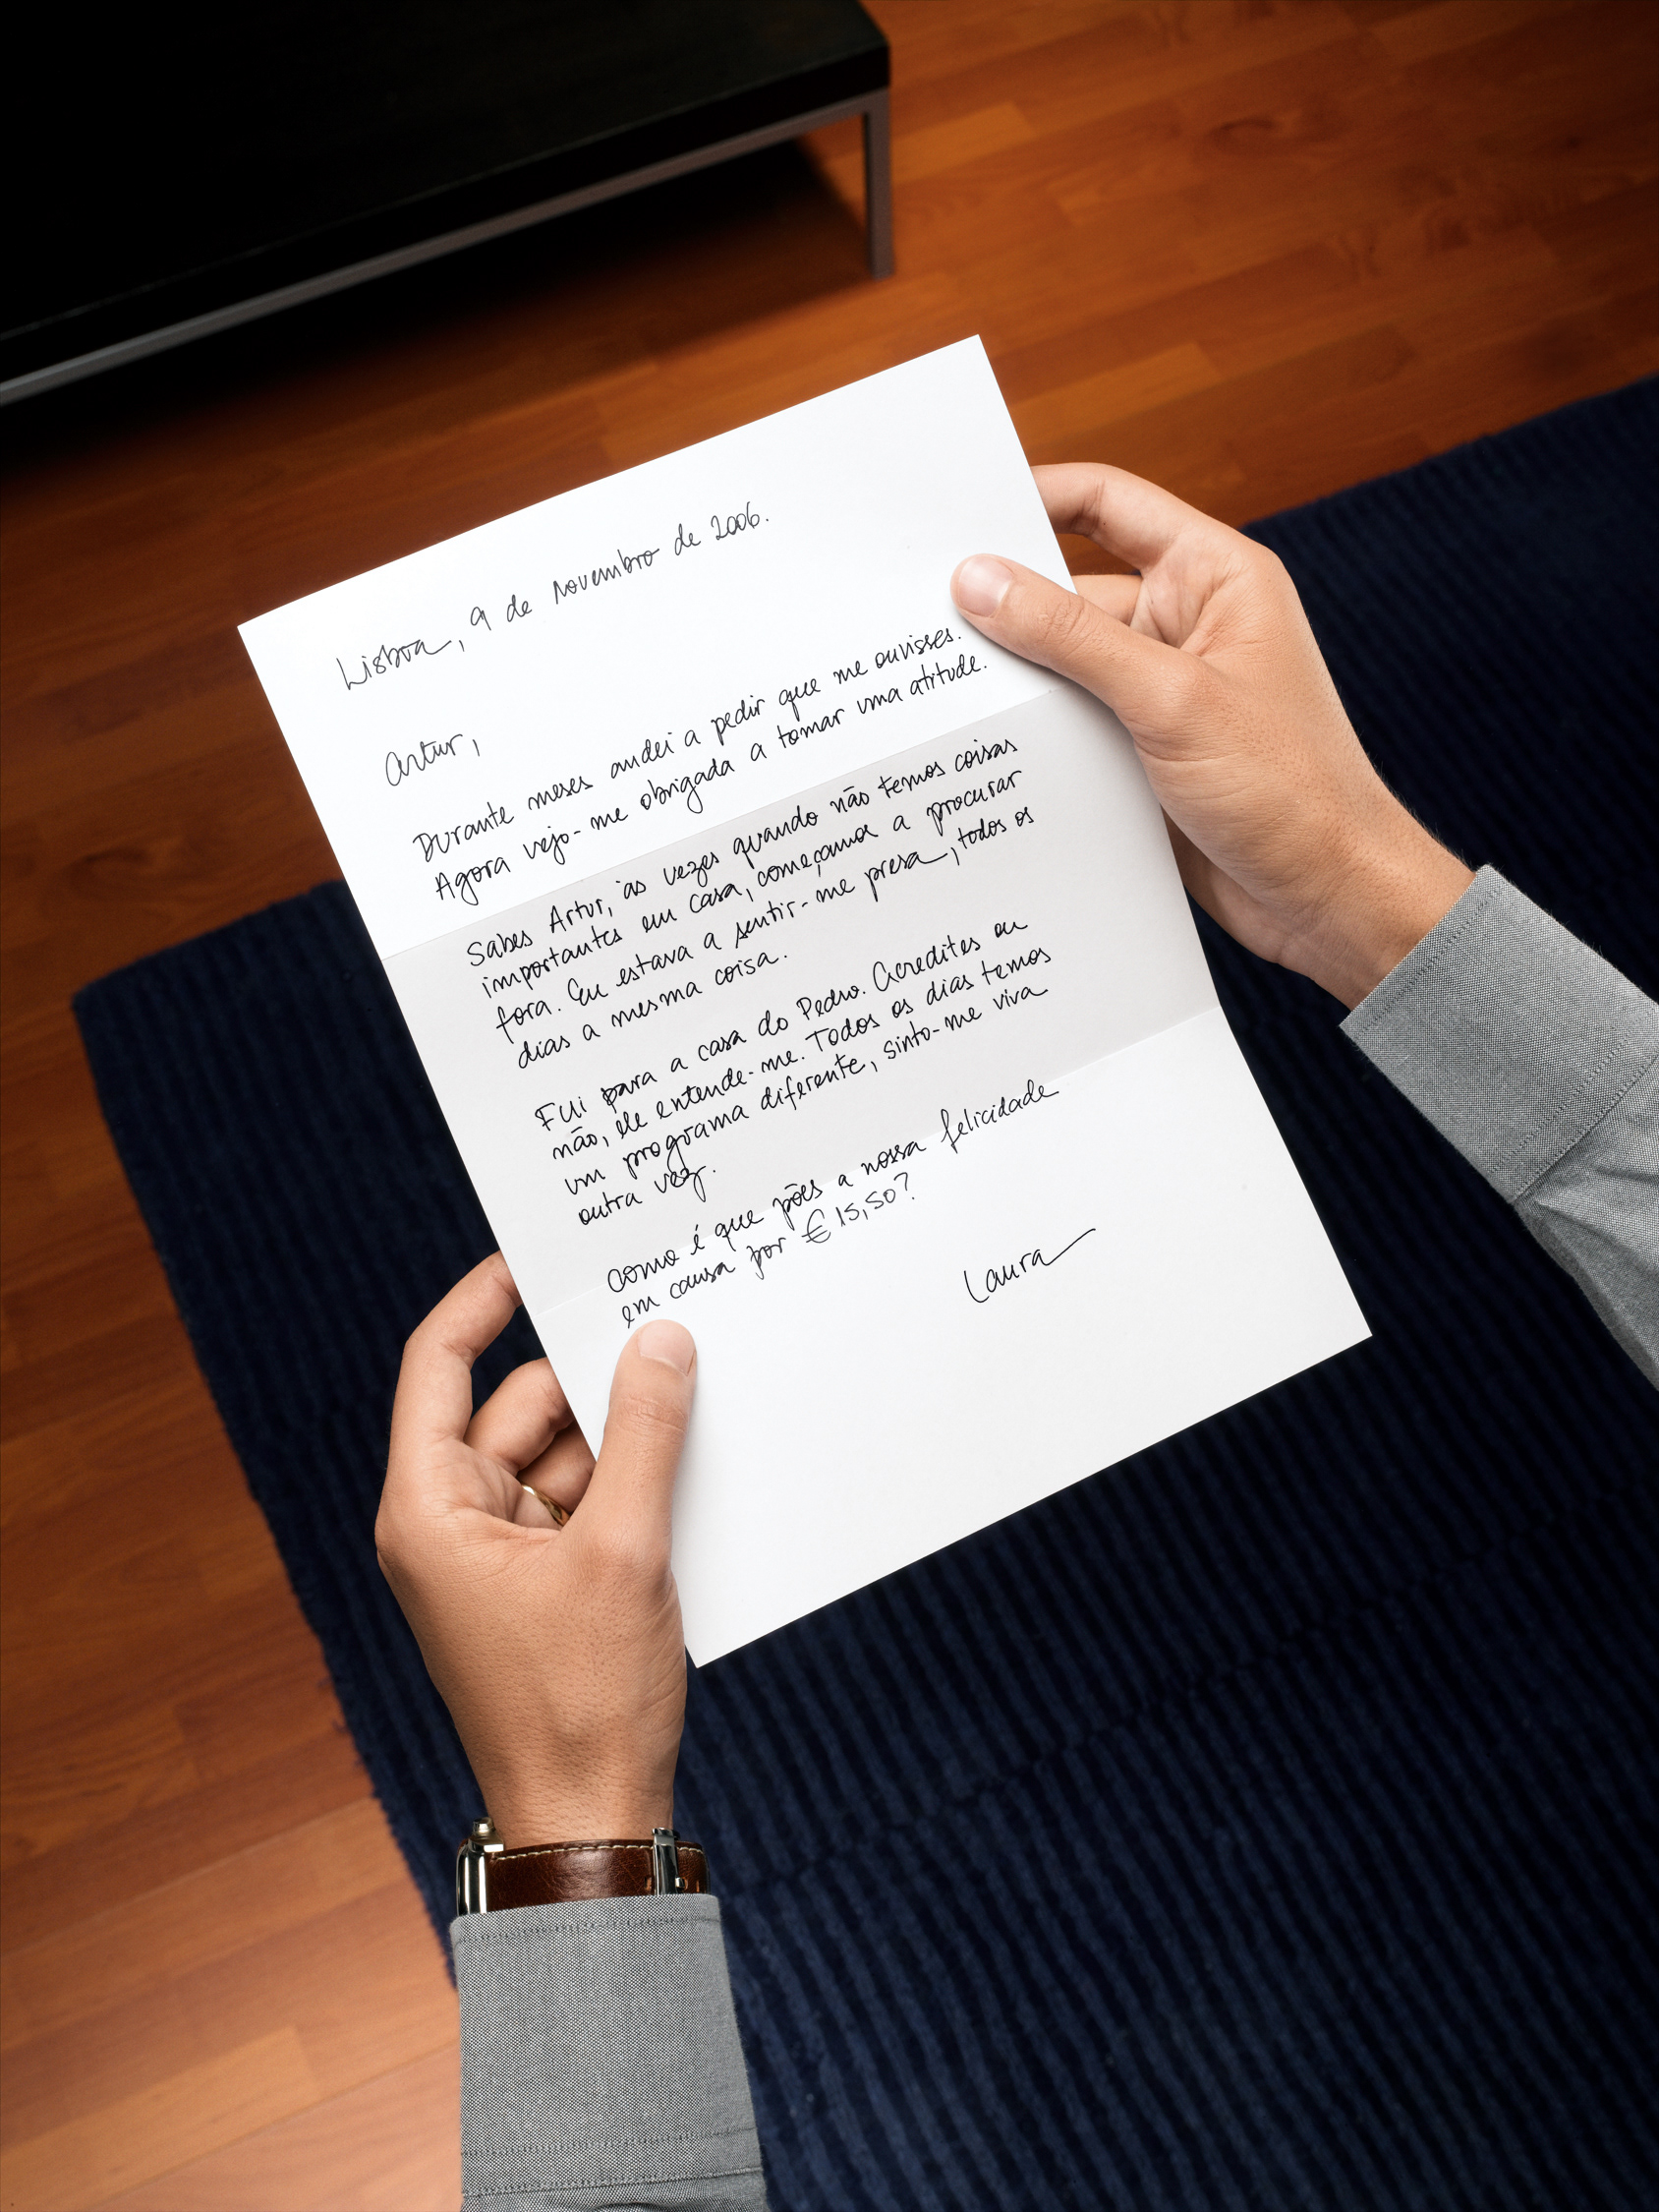 Lisboa, 9 de novembro de 2006.
Artur,
Durante meses andei a pedir que me ouvisses.
Agora vejo-me obrigada a tomar uma atitude.
Sabes Artur, às vezes quando não temos coisas
importantes em casa, começamos a procurar
fora. Eu estava a sentir-me presa, todos os
dias a mesma coisa.
Fui para a casa do Pedro. Acredites ou
não, ele entende-me. Todos os dias temos
um programa diferente, sinto-me viva
outra vez.
Como é que pões a nossa felicidade
em causa por € 15,50?
Laura